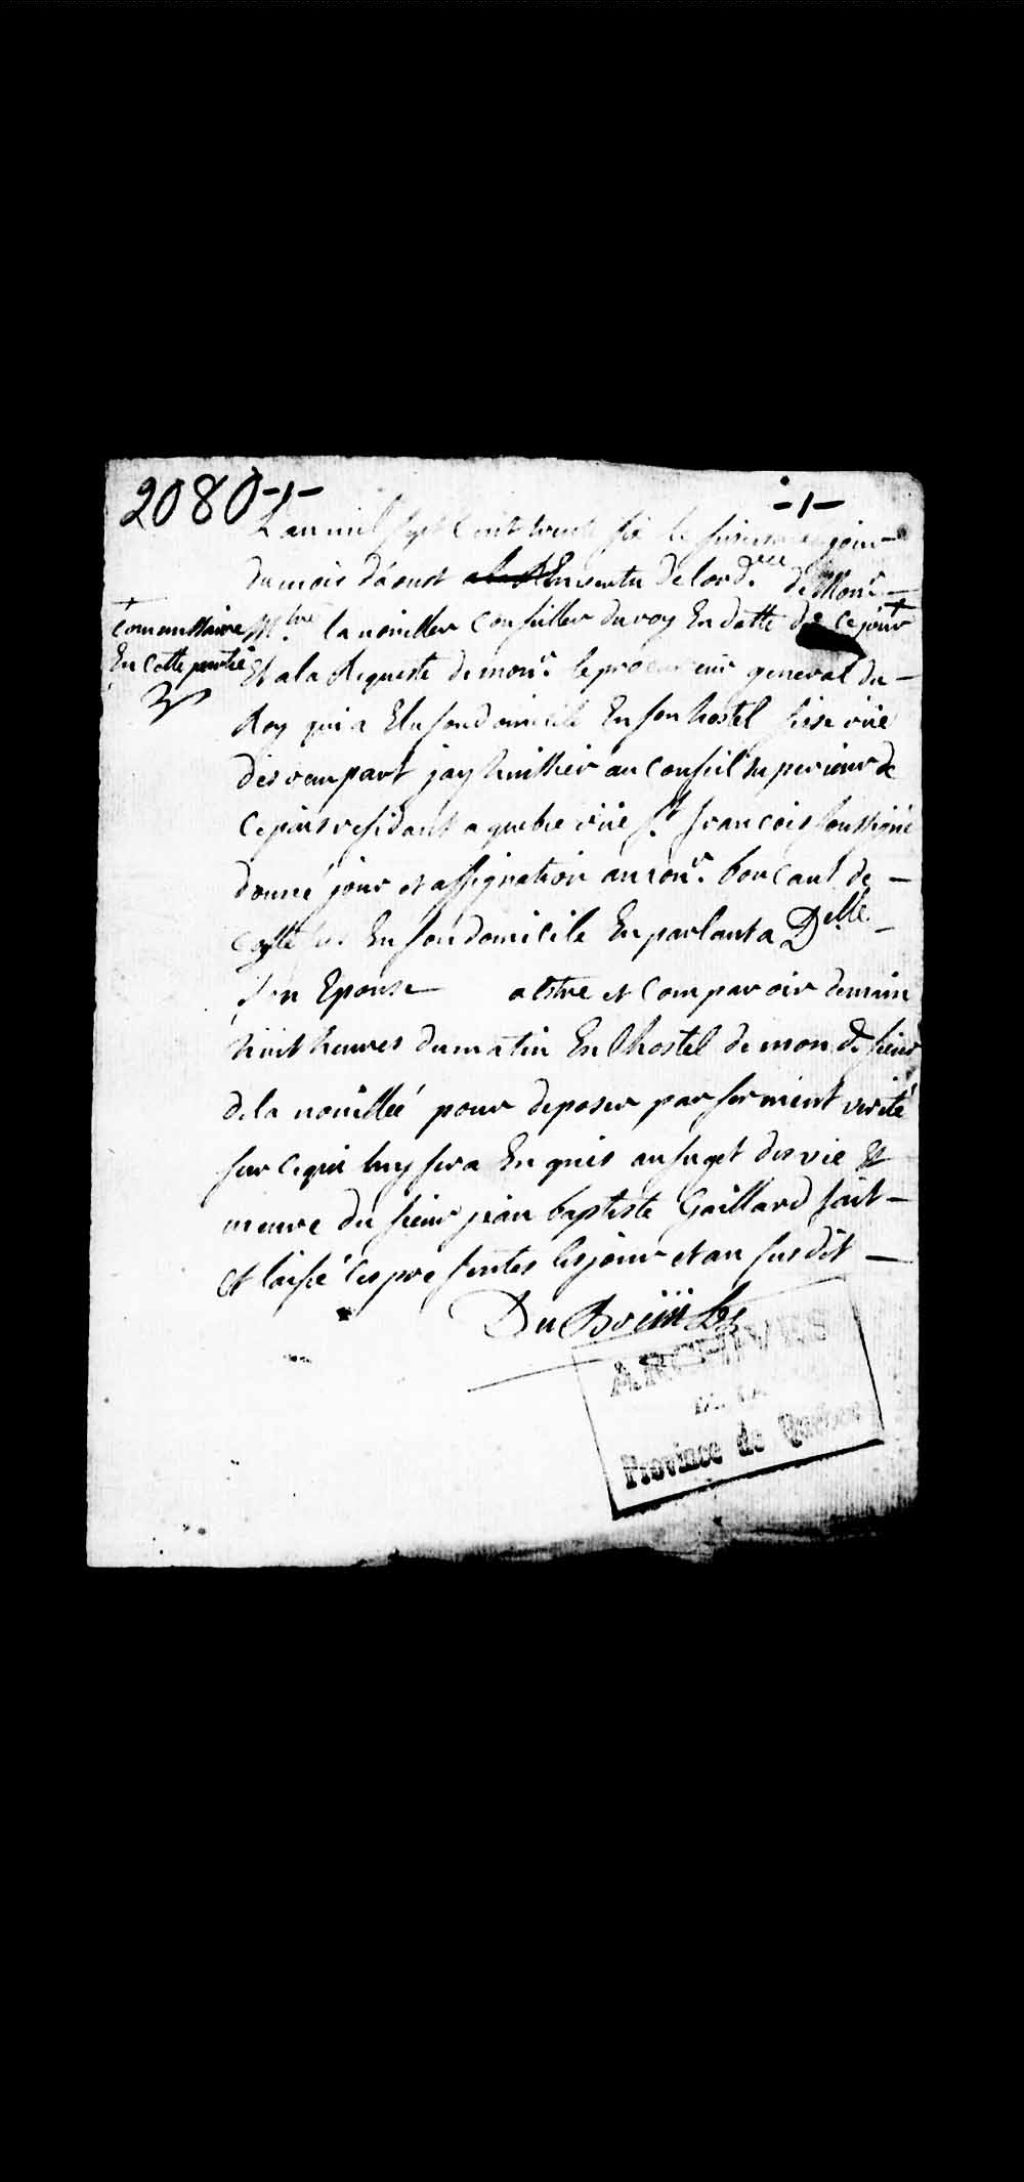 2080-1-
-1-
L'an mil sept Cent trente six le jour
du mois daoust En vertu de lord.ce de Monr
+
Commissaire
En Cette partie
M.tre la nouiller Conseiller du roy En datte de Ce jour +
Et ala Requeste de monr. le procureur general du
Roy qui a Elu son domicile En son hostel sise rüe
des rempart jay huissier au Conseil superieur de
Ce païs residant a quebec rüe St. francois soussigné
donné jour et assignation au sr. boucaut de
En son domicile En parlant a Delle.
son Epouse a Estre et Comparoir demain
huit heures du matin En lhostel de mon d. sieur
de la nouillée pour deposer par serment verité
sur Ce qui luy sera En quis au suget des vie Et
meure du sieur jean baptiste Gaillard fait
Et laissé Ces presentes les jour et an susdit
DuBreüil
ARCHIVES
DE LA
Province de Québec